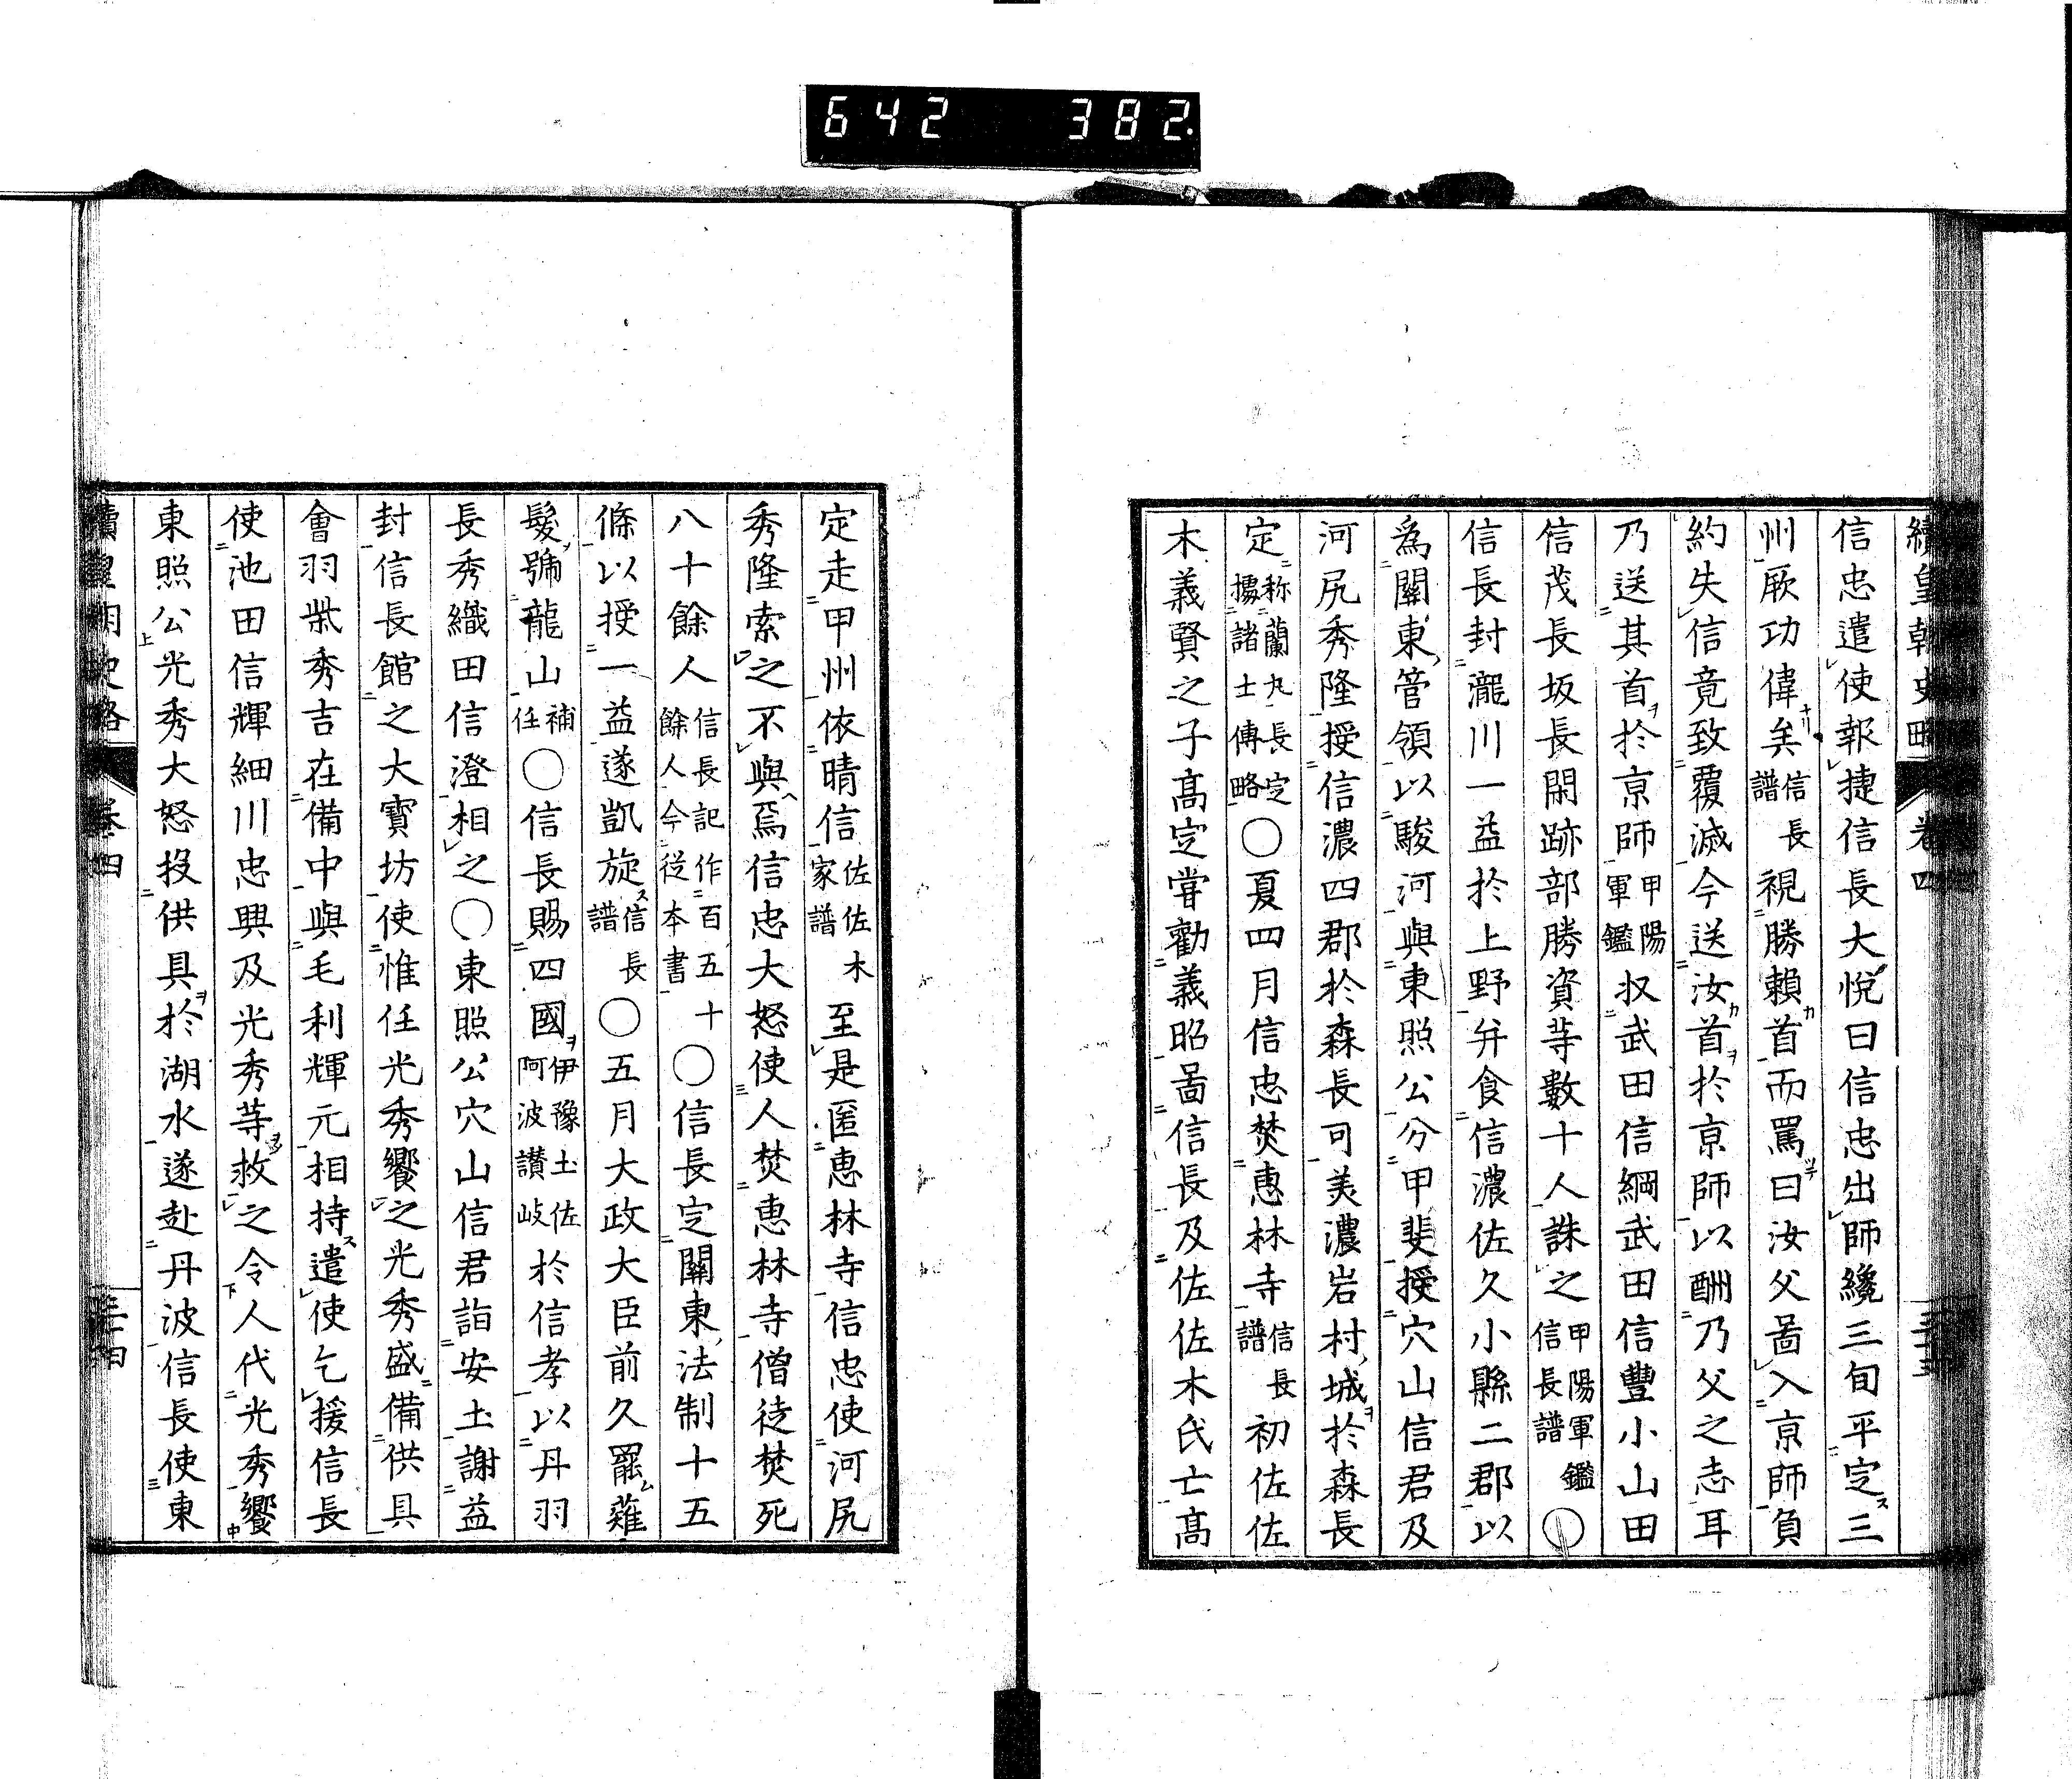 642 382.
續皇朝史略 卷四
信忠遣使報捷信長大悅曰信忠出師纔三旬平定三
州厥功偉矣信長譜視勝賴首而罵曰汝父啚入京師負
約失信竟致覆滅今送汝首於京師以酬乃父之志耳
乃送其首於京師甲陽軍鑑収武田信綱武田信豐小山田
信茂長坂長閑跡部勝資等數十人誅之甲陽軍鑑信長譜〇
信長封瀧川一益於上野弁食信濃佐久小縣二郡以
爲關東管領以駿河與東照公分甲斐授穴山信君及
河尻秀隆授信濃四郡於森長可美濃岩村城於森長
定称蘭丸長定據諸士傳略〇夏四月信忠焚惠林寺信長譜初佐佐
木義賢之子高定甞勸義昭啚信長及佐佐木氏亡高
定走甲州依晴信佐佐木家譜至是匿惠林寺信忠使河尻
秀隆索之不與焉信忠大怒使人焚惠林寺僧徒焚死
八十餘人信長記作百五十餘人今從本書〇信長定關東法制十五
條以授一益遂凱旋信長譜〇五月大政大臣前久罷薙
髮號龍山補任〇信長賜四國伊豫土佐阿波讃岐於信孝以丹羽
長秀織田信澄相之〇東照公穴山信君詣安土謝益
封信長館之大寶坊使惟任光秀饗之光秀盛備供具
會羽柴秀吉在備中與毛利輝元相持遣使乞援信長
使池田信輝細川忠興及光秀等救之令人代光秀饗
東照公光秀大怒投供具於湖水遂赴丹波信長使東
續皇朝史略 卷四